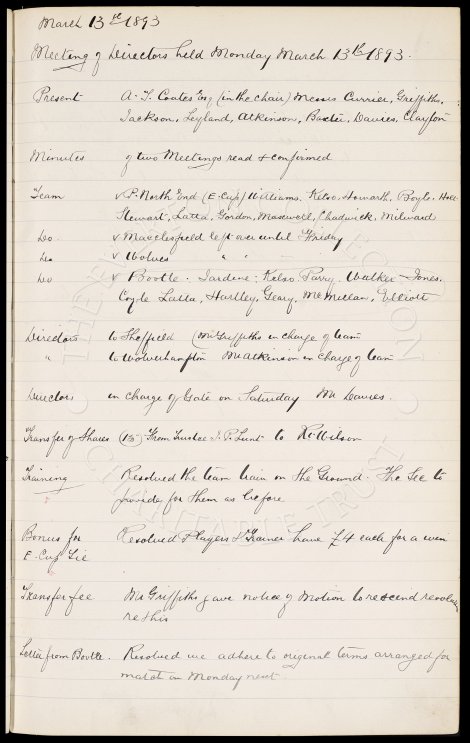 March 13th 1893
Meeting of Directors held Monday March 13th 1893.
Present A. T. Coates Esq (in the chair) Messrs Currier, Griffiths,
Jackson, Leyland, Atkinsons, Baxter, Davies, Clayton
Minutes of two Meetings read & confirmed
Team v P. North End (E-Cup) Williams, Kelso, Howarth, Boyle, Holt
Stewart, Latta, Gordon, Maxwell, Chadwick, Milward
Do v Macclesfield left over until Friday
Do v Wolves " " "
Do v Bootle. Jardine. Kelso, Parry, Walker Jones,
Coyle Latta, Hartley, Geary, McMillan, Elliott
Directors to Sheffield (Mr Griffiths in charge of team
" to Wolverhampton Mr Atkinson in charge of team
Directors in charge of Gate on Saturday Mr Davies.
Transfer of Shares (15) From Trustee J. P. Lunt to R. Wilson
Training Resolved the team train on the Ground. The Sec to
provide for them as before
Bonus for Resolved Players & Trainer have £4 each for a win
E-Cup Tie
Transfer fee Mr Griffiths gave notice of Motion to rescend
re this
Letter from Bootle. Resolved we adhere to original terms arranged for
match on Monday next.
THE
COLLECTION
CHARITABLE TRUST